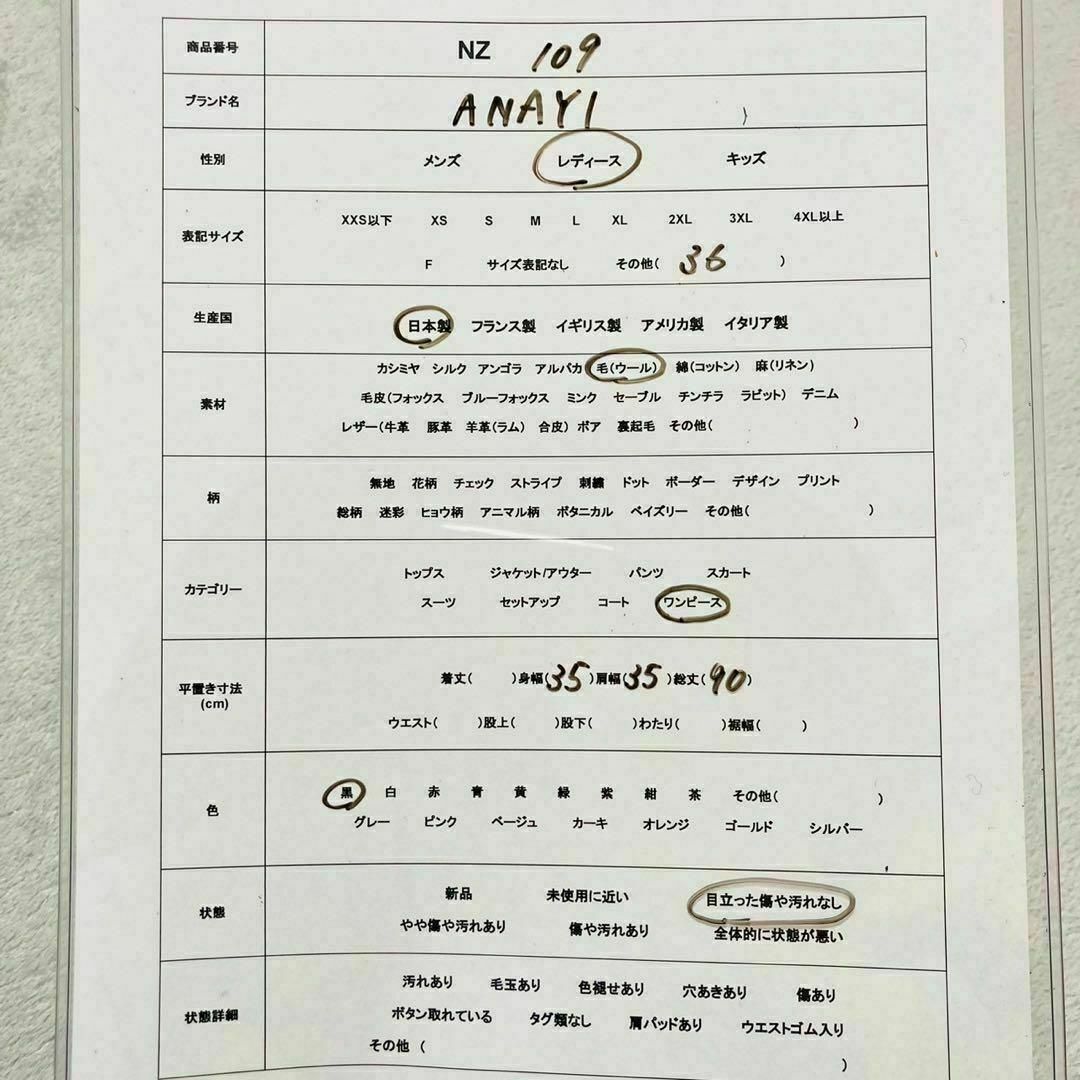 商品番号 NZ 109
ブランド名 ANAYI )
性別 メンズ レディース キッズ
表記サイズ XXS以下 XS S M L XL 2XL 3XL 4XL以上
F サイズ表記なし その他( 36 )
生産国 日本製 フランス製 イギリス製 アメリカ製 イタリア製
素材 カシミヤ シルク アンゴラ アルパカ 毛(ウール) 綿(コットン) 麻(リネン)
毛皮(フォックス ブルーフォックス ミンク セーブル チンチラ ラビット) デニム
レザー(牛革 豚革 羊革(ラム) 合皮) ボア 裏起毛 その他( )
柄 無地 花柄 チェック ストライプ 刺繍 ドット ボーダー デザイン プリント
総柄 迷彩 ヒョウ柄 アニマル柄 ボタニカル ペイズリー その他( )
カテゴリー トップス ジャケット/アウター パンツ スカート
スーツ セットアップ コート ワンピース
平置き寸法 (cm) 着丈( )身幅(35)肩幅(35)総丈(90)
ウエスト( )股上( )股下( )わたり( )裾幅( )
色 黒 白 赤 青 黄 緑 紫 紺 茶 その他( )
グレー ピンク ベージュ カーキ オレンジ ゴールド シルバー
状態 新品 未使用に近い 目立った傷や汚れなし
やや傷や汚れあり 傷や汚れあり 全体的に状態が悪い
状態詳細 汚れあり 毛玉あり 色褪せあり 穴あきあり 傷あり
ボタン取れている タグ類なし 肩パッドあり ウエストゴム入り
その他 ( )